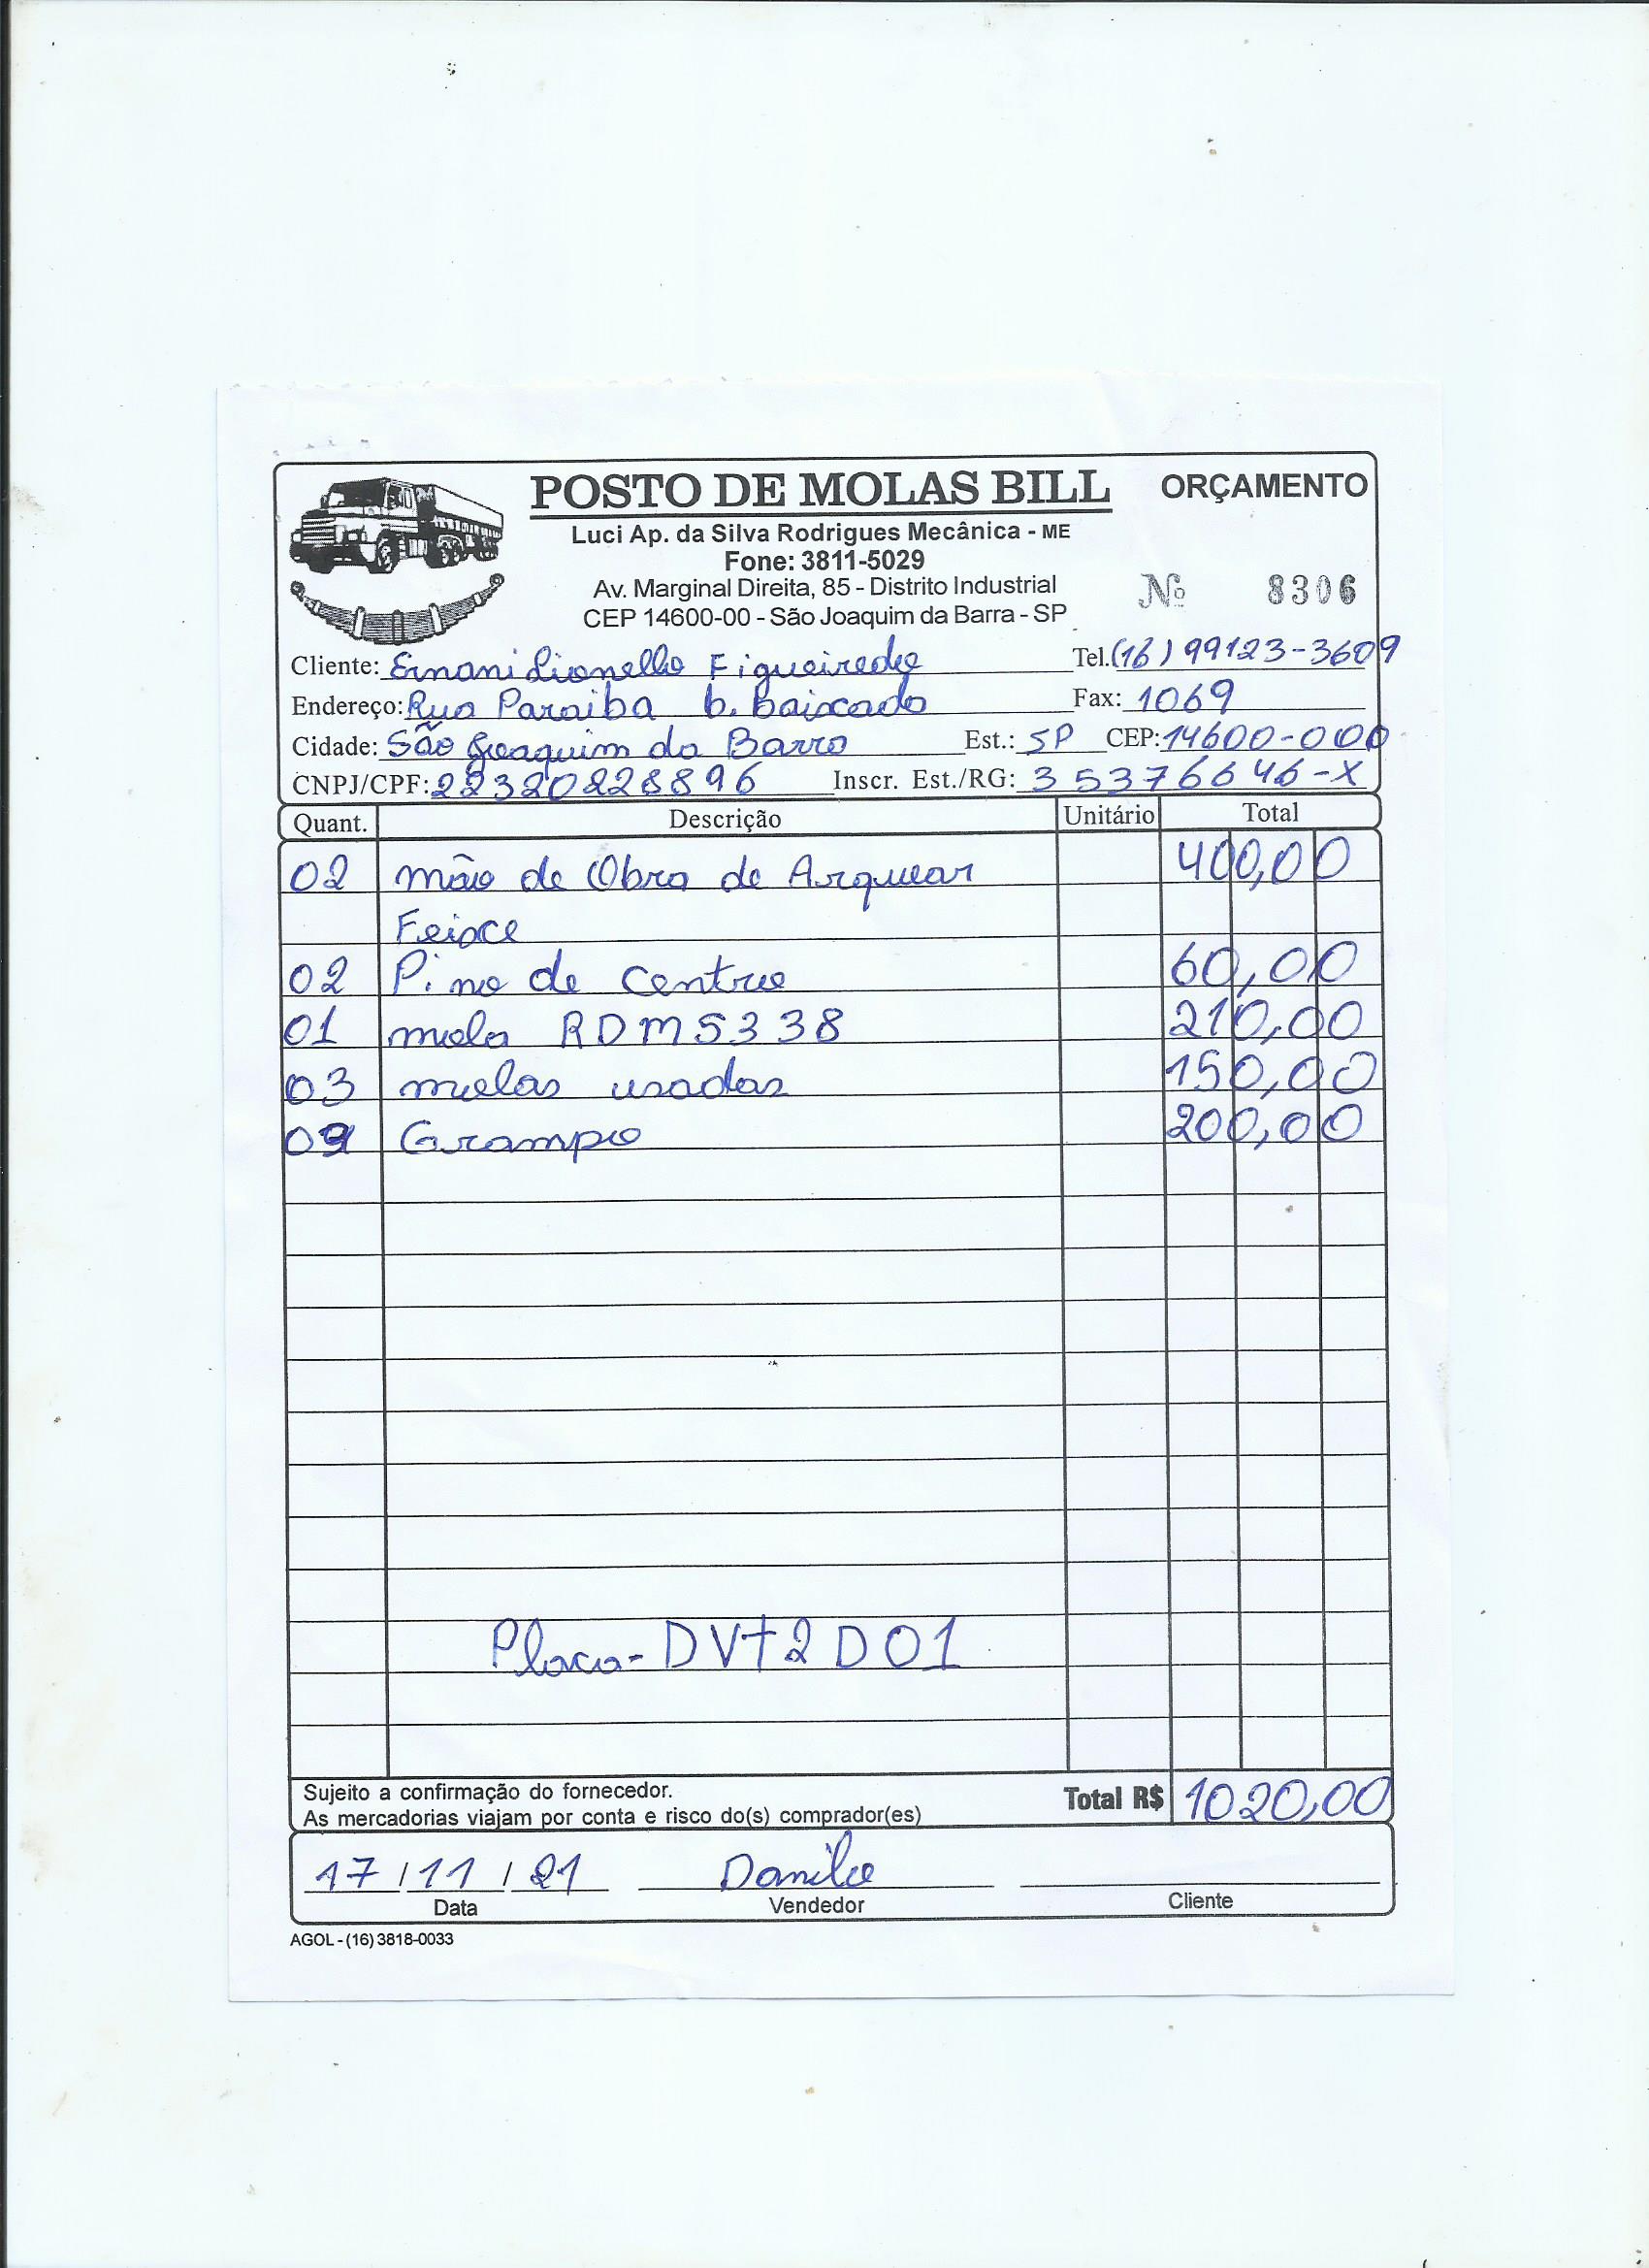 POSTO DE MOLAS BILL ORÇAMENTO
Luci Ap. da Silva Rodrigues Mecânica - ME
Fone: 3811-5029
Av. Marginal Direita, 85 - Distrito Industrial
Nº 8306
CEP 14600-00 - São Joaquim da Barra - SP
Cliente: Ernani Lionello Figueiredo Tel. (16) 99123-3609
Endereço: Rua Paraiba b. baixada Fax: 1069
Cidade: São Joaquim da Barra Est.: SP CEP: 14600-000
CNPJ/CPF: 22320228896 Inscr. Est./RG: 35376646-X
Quant. Descrição Unitário Total
02 mão de Obra de Arquear 400,00
Feixe
02 Pino de Centro 60,00
01 mola RDM5338 210,00
03 molas usadas 150,00
Grampo 200,00
Placa - DVT2D01
Sujeito a confirmação do fornecedor.
As mercadorias viajam por conta e risco do(s) comprador(es)
Total R$ 1020,00
17/11/21 Danilo
Data Vendedor Cliente
AGOL - (16) 3818-0033